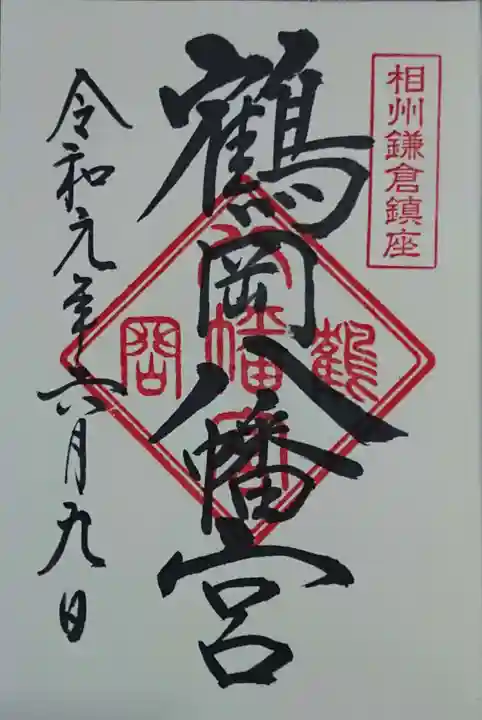 相州鎌倉鎮座
鶴岡八幡宮
鶴岡八幡宮
令和元年六月九日